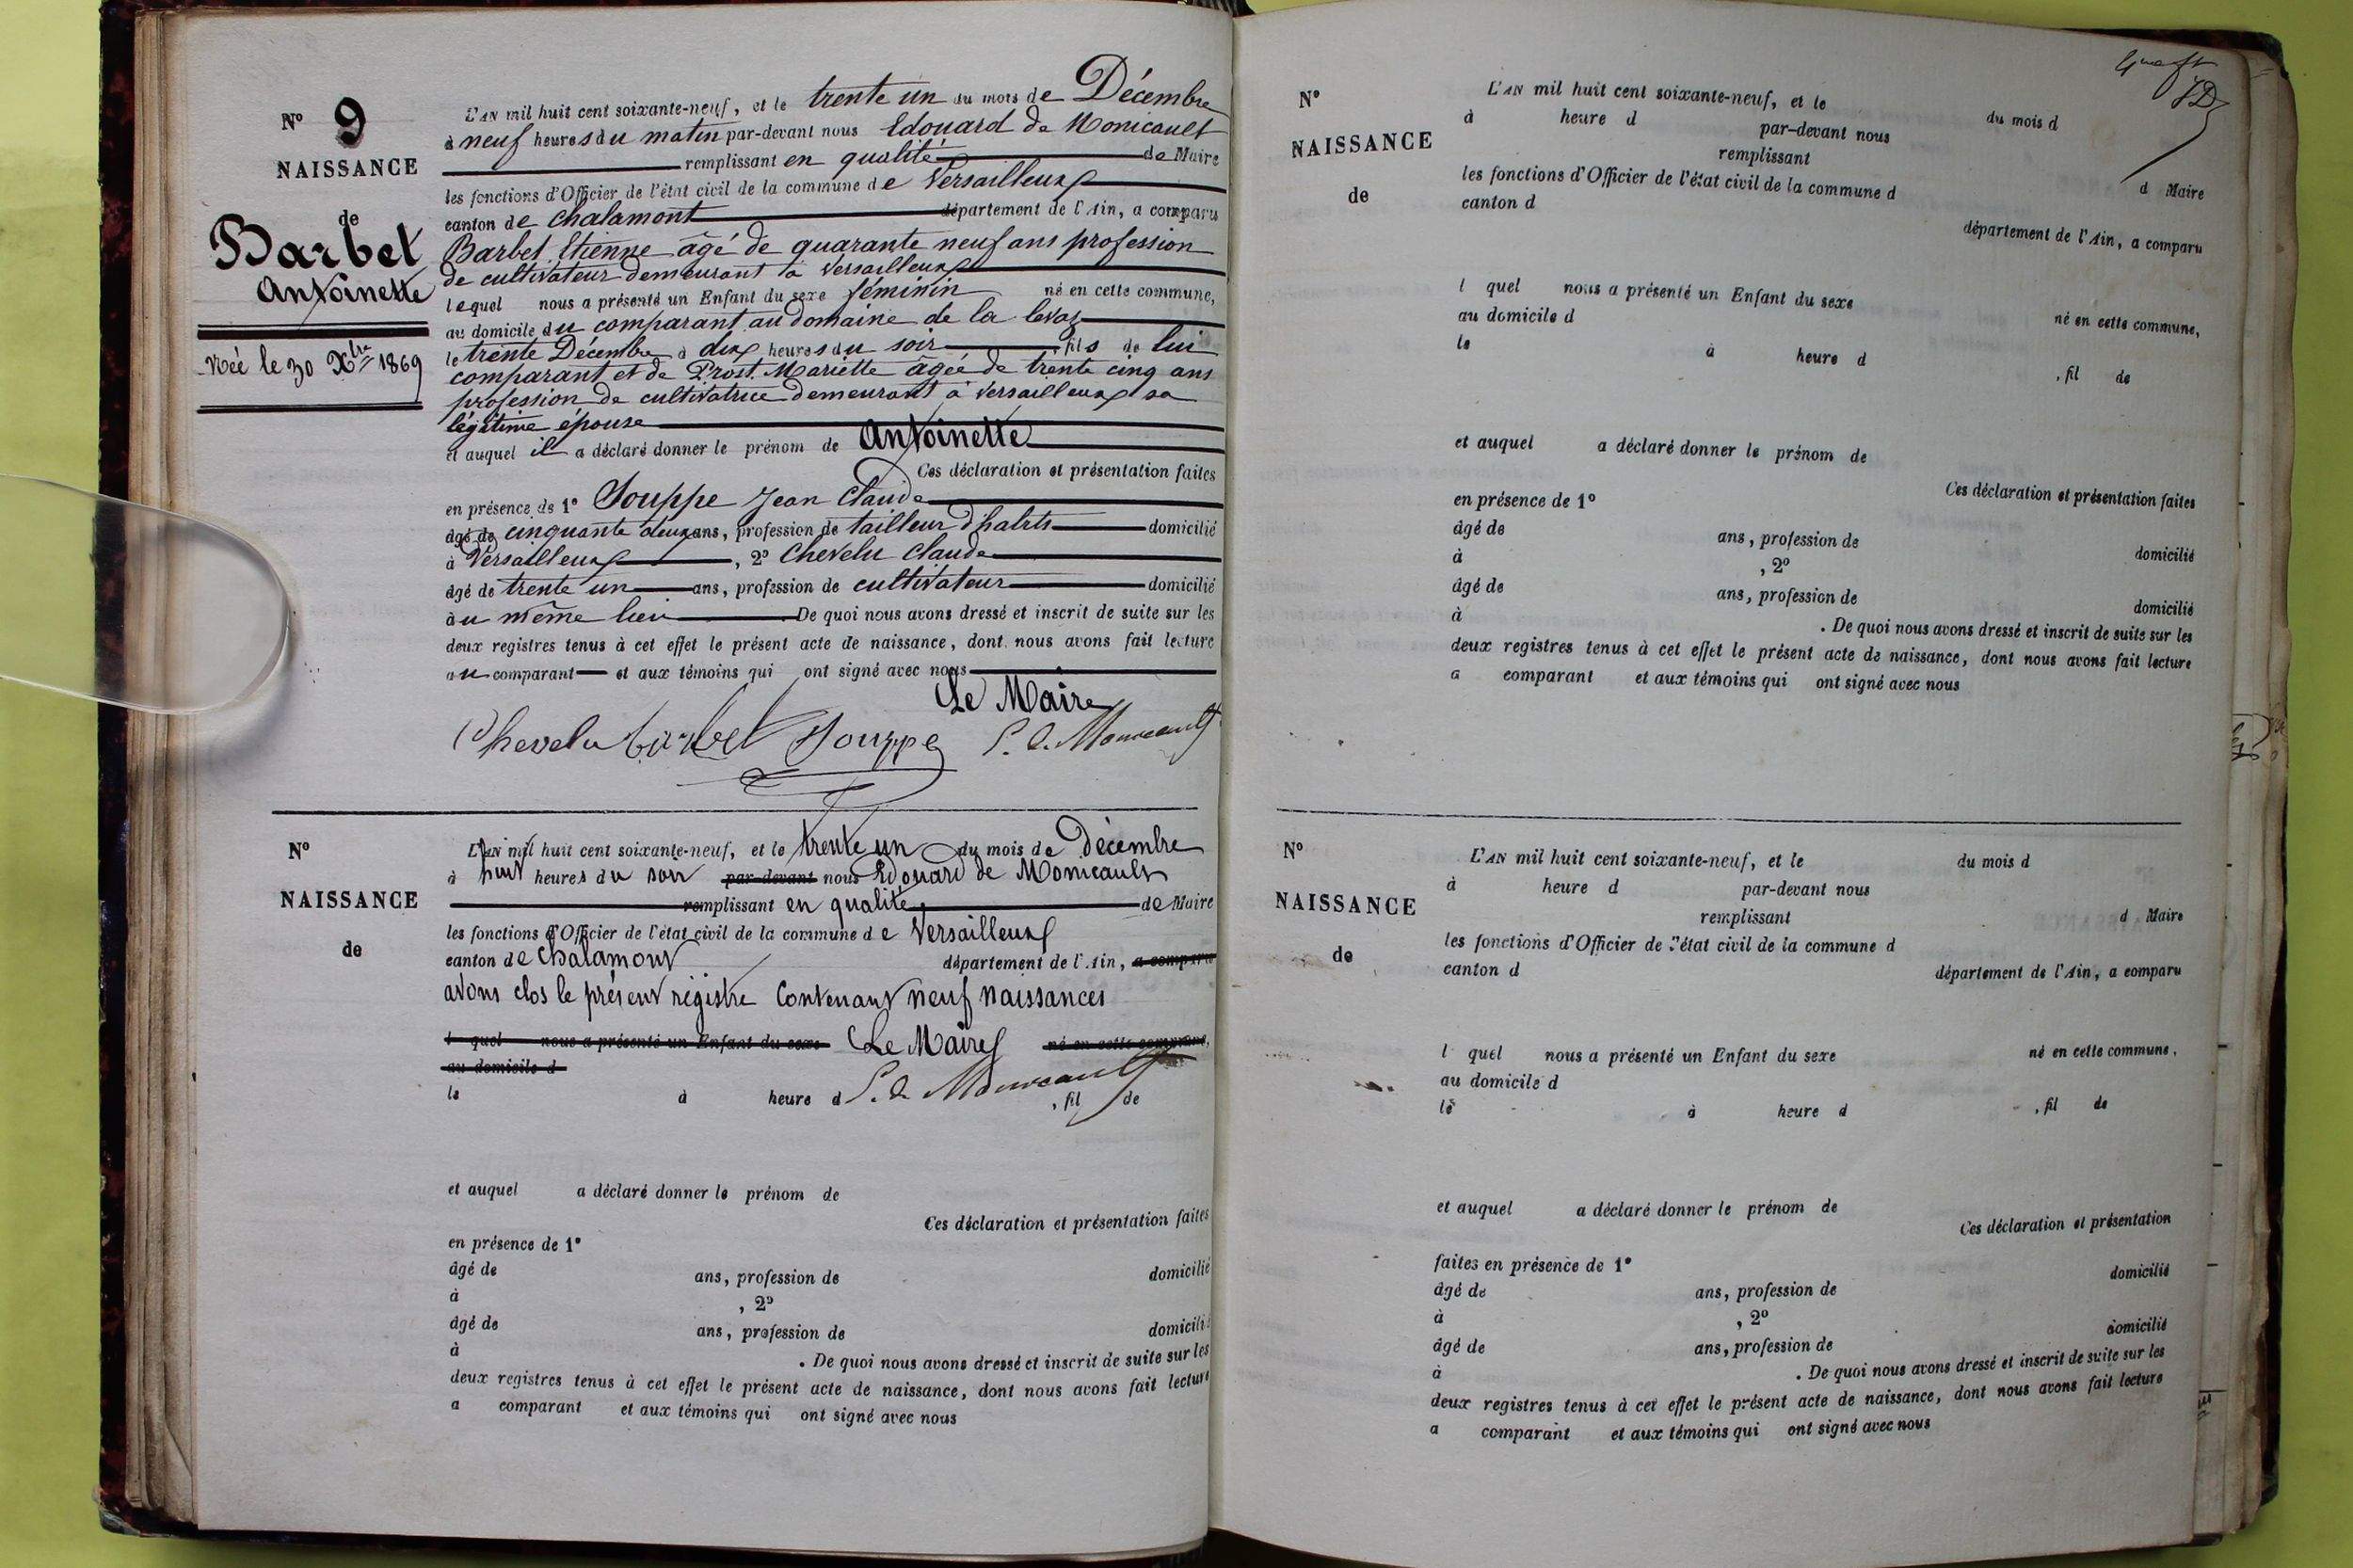 N° 9
NAISSANCE
de
Barbet
Antoinette
Née le 30 Xbre 1869
L'AN mil huit cent soixante-neuf, et le trente un du mois de Décembre
à neuf heures du matin par-devant nous Edouard de Monicault
remplissant en qualité de Maire
les fonctions d'Officier de l'état civil de la commune de Versailleux
canton de Chalamont département de l'Ain, a comparu
Barbet Etienne âgé de quarante neuf ans profession
de cultivateur demeurant à Versailleux
lequel nous a présenté un Enfant du sexe féminin né en cette commune,
au domicile du comparant au domaine de la levaz
le trente Décembre à dix heures du soir fils de lui
comparant et de Prost Mariette âgée de trente cinq ans
profession de cultivatrice demeurant à Versailleux sa
légitime épouse
et auquel il a déclaré donner le prénom de Antoinette
Ces déclaration et présentation faites
en présence de 1° Souppe Jean Claude
âgé de cinquante deux ans, profession de tailleur d'habits domicilié
à Versailleux, 2° Chevelu Claude
âgé de trente un ans, profession de cultivateur domicilié
au même lieu De quoi nous avons dressé et inscrit de suite sur les
deux registres tenus à cet effet le présent acte de naissance, dont nous avons fait lecture
au comparant et aux témoins qui ont signé avec nous
Le Maire
Chevelu barbet Souppe E. de Monicault
N°
NAISSANCE
de
L'AN mil huit cent soixante-neuf, et le trente un du mois de Décembre
à huit heures du soir par-devant nous Edouard de Monicault
remplissant en qualité de Maire
les fonctions d'Officier de l'état civil de la commune de Versailleux
canton de Chalamont département de l'Ain, a comparu
avons clos le présent régistre Contenant neuf naissances
l quel nous a présenté un Enfant du sexe Le Maire né en cette commune,
au domicile d
le à heure d E. de Monicault , fil de
et auquel a déclaré donner le prénom de
Ces déclaration et présentation faites
en présence de 1°
âgé de ans, profession de domicilié
à , 2°
âgé de ans, profession de domicilié
à . De quoi nous avons dressé et inscrit de suite sur les
deux registres tenus à cet effet le présent acte de naissance, dont nous avons fait lecture
a comparant et aux témoins qui ont signé avec nous
N°
NAISSANCE
de
L'AN mil huit cent soixante-neuf, et le du mois d
à heure d par-devant nous
remplissant d Maire
les fonctions d'Officier de l'état civil de la commune d
canton d département de l'Ain, a comparu
l quel nous a présenté un Enfant du sexe né en cette commune,
au domicile d
le à heure d , fil de
et auquel a déclaré donner le prénom de
Ces déclaration et présentation faites
en présence de 1°
âgé de ans, profession de domicilié
à , 2°
âgé de ans, profession de domicilié
à . De quoi nous avons dressé et inscrit de suite sur les
deux registres tenus à cet effet le présent acte de naissance, dont nous avons fait lecture
a comparant et aux témoins qui ont signé avec nous
N°
NAISSANCE
de
L'AN mil huit cent soixante-neuf, et le du mois d
à heure d par-devant nous
remplissant d Maire
les fonctions d'Officier de l'état civil de la commune d
canton d département de l'Ain, a comparu
l quel nous a présenté un Enfant du sexe né en cette commune,
au domicile d
le à heure d , fil de
et auquel a déclaré donner le prénom de
Ces déclaration et présentation
faites en présence de 1°
âgé de ans, profession de domicilié
à , 2°
âgé de ans, profession de domicilié
à . De quoi nous avons dressé et inscrit de suite sur les
deux registres tenus à cet effet le présent acte de naissance, dont nous avons fait lecture
a comparant et aux témoins qui ont signé avec nous